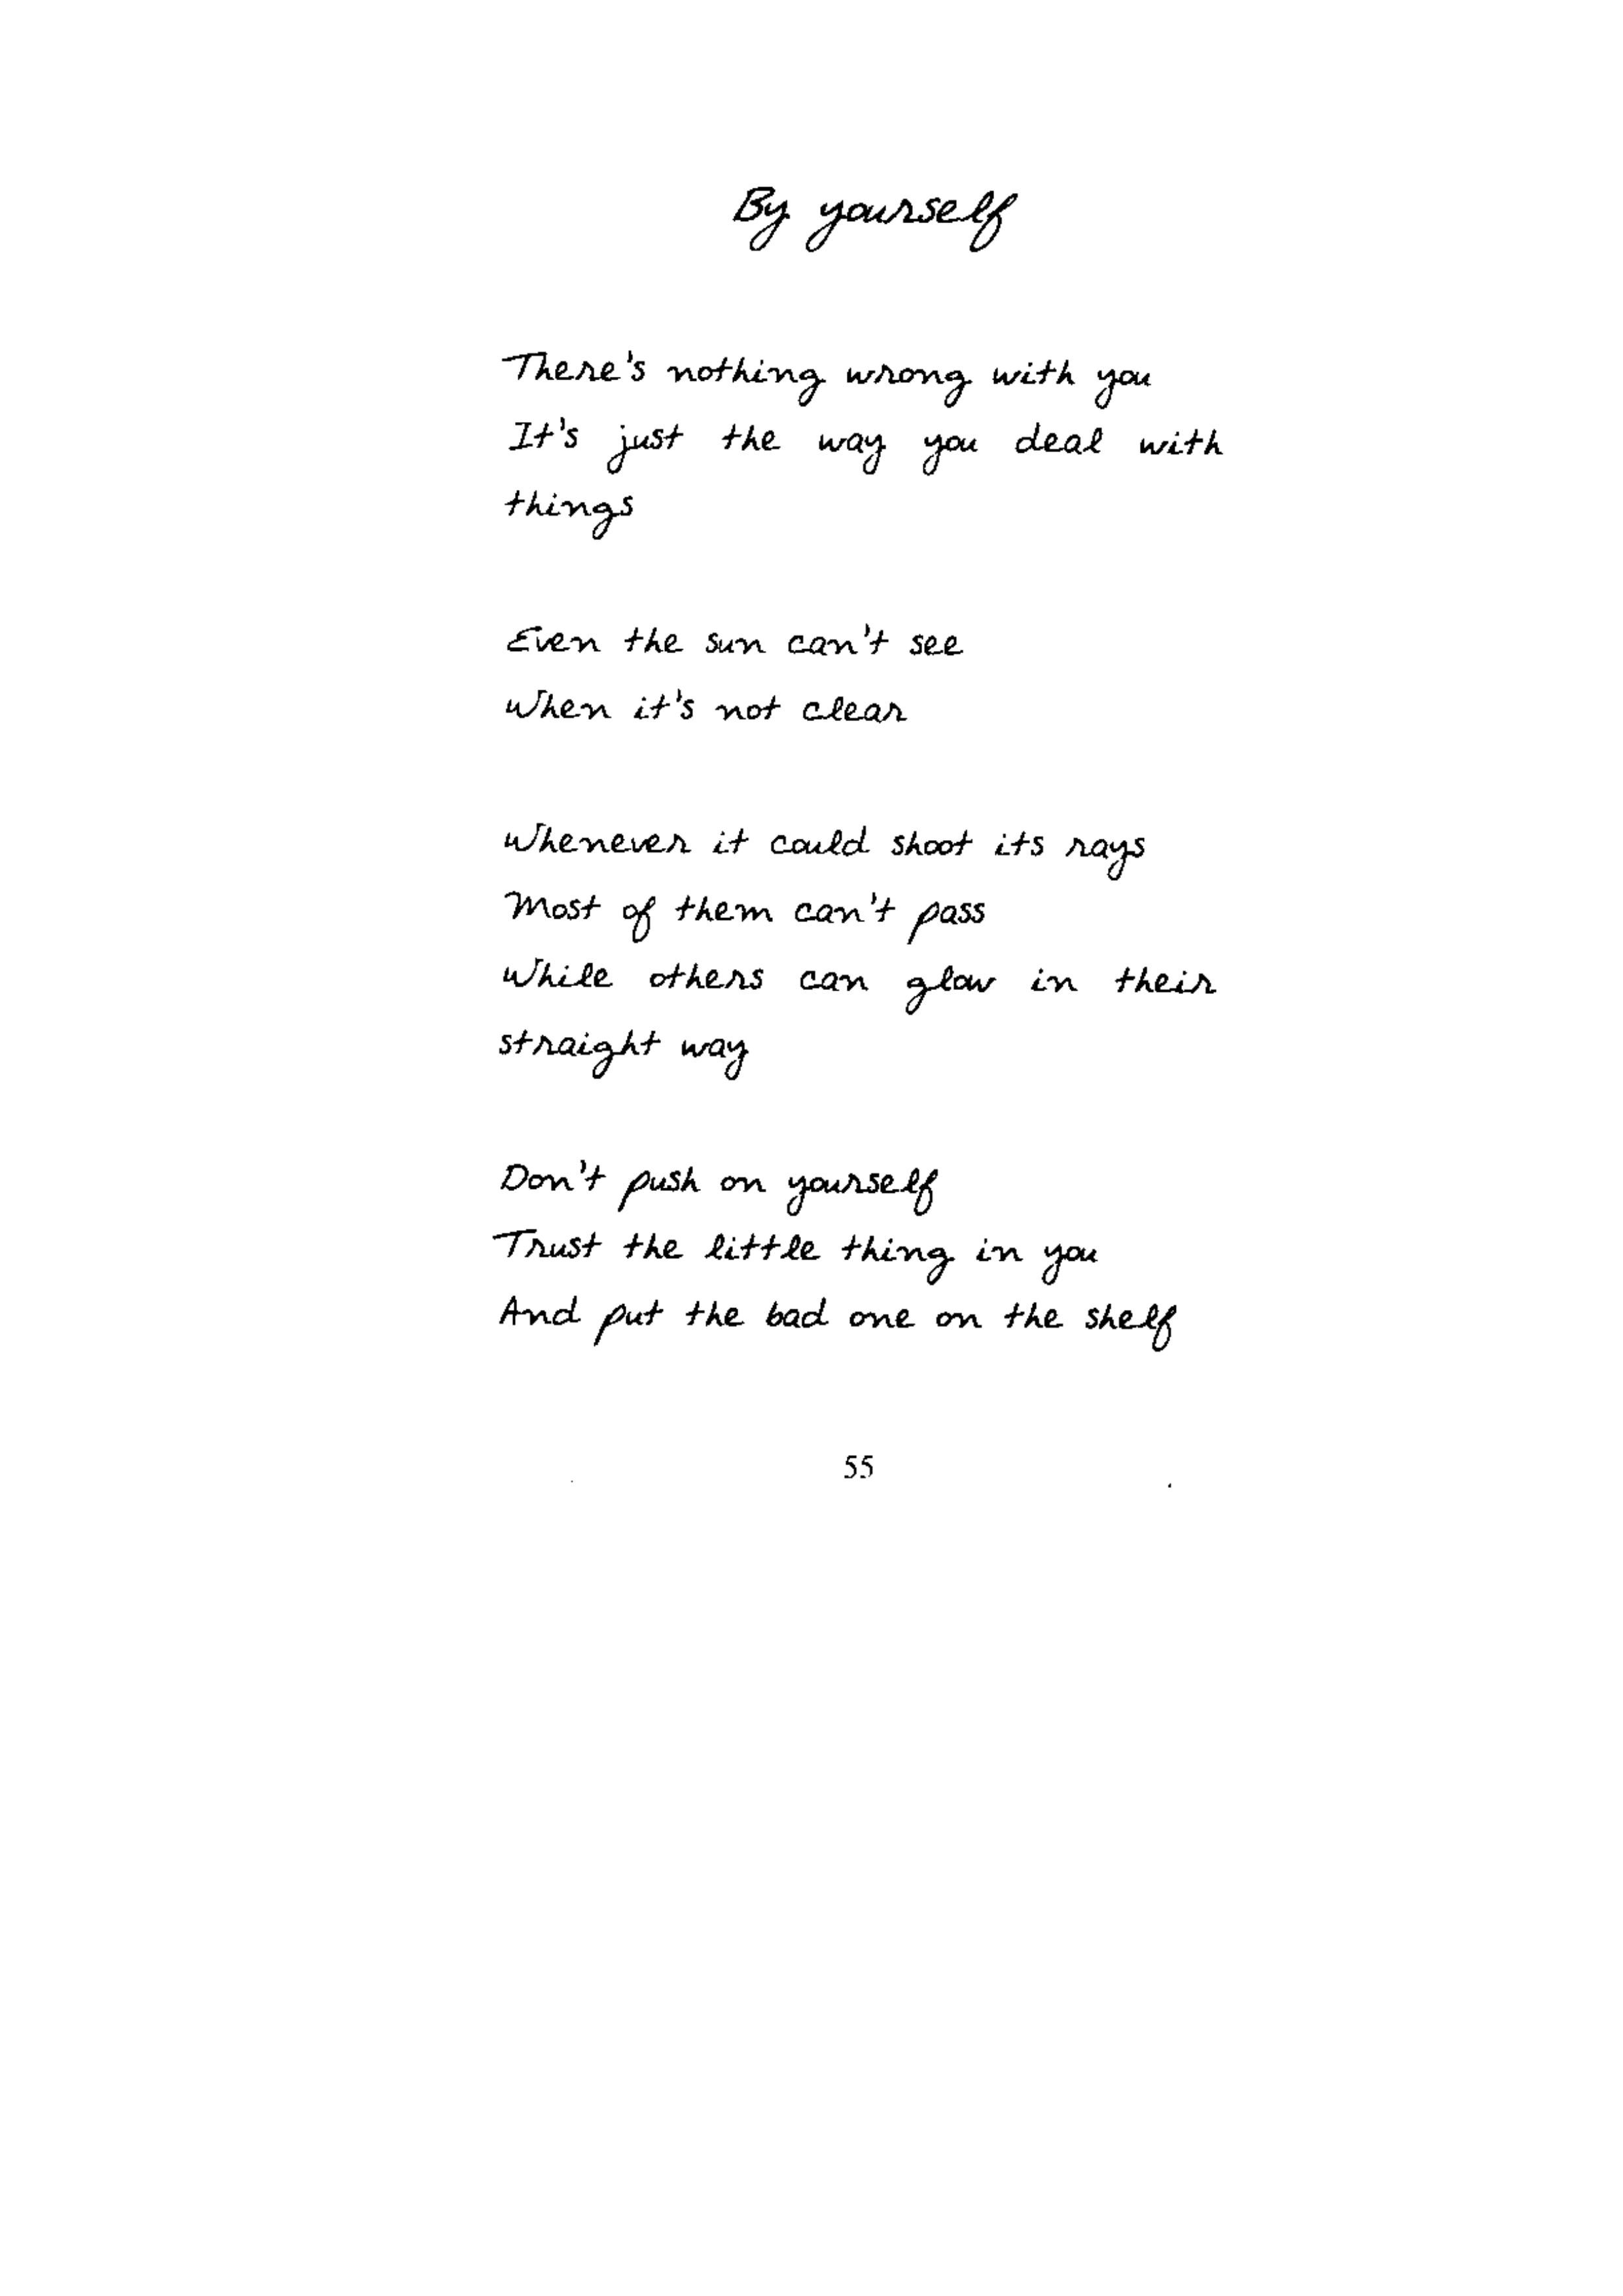 By yourself
There's nothing wrong with you
It's just the way you deal with
things
Even the sun can't see
When it's not clear
Whenever it could shoot its rays
Most of them can't pass
While others can glow in their
straight way
Don't push on yourself
Trust the little thing in you
And put the bad one on the shelf
55